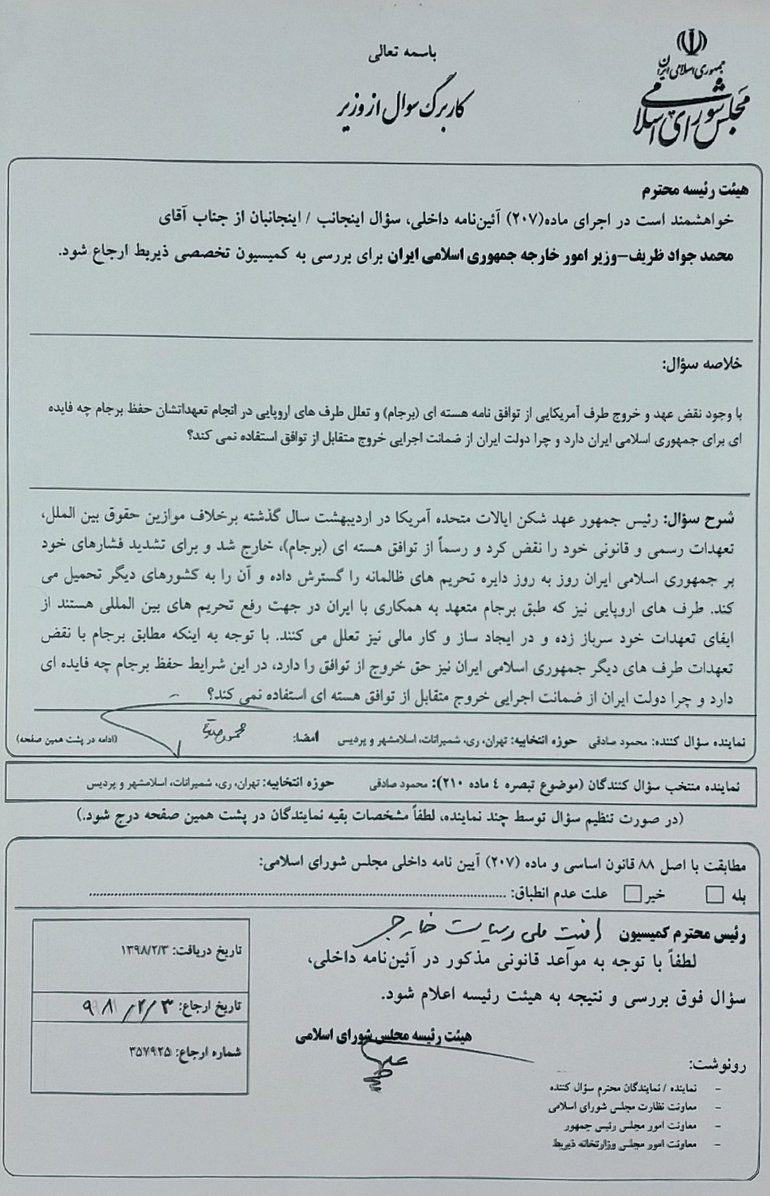 جمهوری اسلامی ایران
مجلس شورای اسلامی
باسمه تعالی
کاربرگ سوال از وزیر
هیئت رئیسه محترم
خواهشمند است در اجرای ماده(۲۰۷) آئین‌نامه داخلی، سؤال اینجانب / اینجانبان از جناب آقای
محمد جواد ظریف-وزیر امور خارجه جمهوری اسلامی ایران برای بررسی به کمیسیون تخصصی ذیربط ارجاع شود.
خلاصه سؤال:
با وجود نقض عهد و خروج طرف آمریکایی از توافق نامه هسته ای (برجام) و تعلل طرف های اروپایی در انجام تعهداتشان حفظ برجام چه فایده
ای برای جمهوری اسلامی ایران دارد و چرا دولت ایران از ضمانت اجرایی خروج متقابل از توافق استفاده نمی کند؟
شرح سؤال: رئیس جمهور عهد شکن ایالات متحده آمریکا در اردیبهشت سال گذشته برخلاف موازین حقوق بین الملل،
تعهدات رسمی و قانونی خود را نقض کرد و رسماً از توافق هسته ای (برجام)، خارج شد و برای تشدید فشارهای خود
بر جمهوری اسلامی ایران روز به روز دایره تحریم های ظالمانه را گسترش داده و آن را به کشورهای دیگر تحمیل می
کند. طرف های اروپایی نیز که طبق برجام متعهد به همکاری با ایران در جهت رفع تحریم های بین المللی هستند از
ایفای تعهدات خود سرباز زده و در ایجاد ساز و کار مالی نیز تعلل می کنند. با توجه به اینکه مطابق برجام با نقض
تعهدات طرف های دیگر جمهوری اسلامی ایران نیز حق خروج از توافق را دارد، در این شرایط حفظ برجام چه فایده ای
دارد و چرا دولت ایران از ضمانت اجرایی خروج متقابل از توافق هسته ای استفاده نمی کند؟
نماینده سؤال کننده: محمود صادقی حوزه انتخابیه: تهران، ری، شمیرانات، اسلامشهر و پردیس امضا: (ادامه در پشت همین صفحه)
نماینده منتخب سؤال کنندگان (موضوع تبصره ٤ ماده ۲۱۰): محمود صادقی حوزه انتخابیه: تهران، ری، شمیرانات، اسلامشهر و پردیس
(در صورت تنظیم سؤال توسط چند نماینده، لطفاً مشخصات بقیه نمایندگان در پشت همین صفحه درج شود.)
مطابقت با اصل ۸۸ قانون اساسی و ماده (۲۰۷) آیین نامه داخلی مجلس شورای اسلامی:
بله خیر علت عدم انطباق: ........................................
رئیس محترم کمیسیون امنیت ملی و سیاست خارجی
لطفاً با توجه به مواعد قانونی مذکور در آئین‌نامه داخلی،
سؤال فوق بررسی و نتیجه به هیئت رئیسه اعلام شود.
هیئت رئیسه مجلس شورای اسلامی
تاریخ دریافت: ۱۳۹۸/۲/۳
تاریخ ارجاع: ۹۸/۲/۳
شماره ارجاع: ۳۵۷۹۲۵
رونوشت:
- نماینده / نمایندگان محترم سؤال کننده
- معاونت نظارت مجلس شورای اسلامی
- معاونت امور مجلس رئیس جمهور
- معاونت امور مجلس وزارتخانه ذیربط